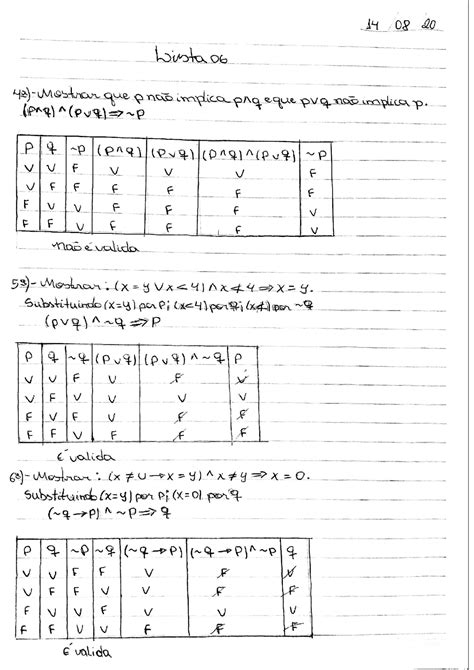 14 08 20
Lista 06
4ª)-Mostrar que p não implica p∧q e que p∨q não implica p.
(p∧q) ∧ (p∨q) ⇒ ~p
p q ~p (p∧q) (p∨q) (p∧q) ∧ (p∨q) ~p
V V F V V V F
V F F F F F F
F V V F F F V
F F V F F F V
não é valida
5ª)-Mostrar: (x = y ∨ x < 4) ∧ x ≮ 4 ⇒ x = y.
Substituindo (x = y) por p; (x < 4) por q; (x ≮) por ~q
(p∨q) ∧ ~q ⇒ p
p q ~q (p∨q) (p∨q) ∧ ~q p
V V F V F V
V F V V V V
F V F V F F
F F V F F F
é valida
6ª)-Mostrar: (x ≠ 0 → x = y) ∧ x ≠ y ⇒ x = 0.
Substituindo (x = y) por p; (x = 0) por q
(~q → p) ∧ ~p ⇒ q
p q ~p ~q (~q → p) (~q → p) ∧ ~p q
V V F F V F V
V F F V V F F
F V V F V V V
F F V V F F F
é valida